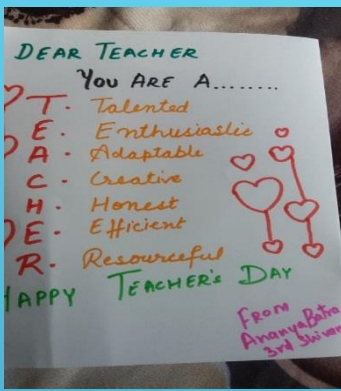 DEAR TEACHER
YOU ARE A........
T. Talented
E. Enthusiastic
A. Adaptable
C. Creative
H. Honest
E. Efficient
R. Resourceful
HAPPY TEACHER'S DAY
FROM
Ananya Batra
3rd